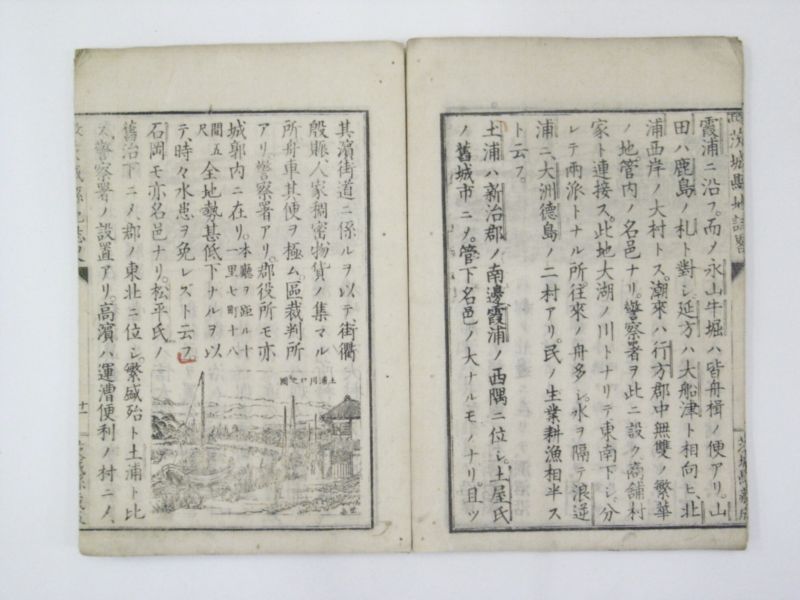 茨城縣地誌畧
霞浦ニ沿フ。而ノ永山牛堀ハ皆舟楫ノ便アリ。山
田ハ鹿島ノ札ト對シ。延方ハ大船津ト相向ヒ、北
浦西岸ノ大村トス。潮來ハ行方郡中無雙ノ繁華
ノ地。管内ノ名邑ナリ。警察署ヲ此ニ設ク。商舗村
家ト連接ス。此地大湖ノ川トナリテ東南下シ。分
レテ兩派トナル所。往來ノ舟多シ。水ヲ隔テ浪逆
浦ニ、大洲德島ノ二村アリ。民ノ生業耕漁相半ス
ト云フ。
土浦ハ新治郡ノ南邊霞浦ノ西隅ニ位シ。土屋氏
ノ舊城市ニノ。管下名邑ノ大ナルモノナリ。且ツ
其濱街道ニ係ルヲ以テ、街衢
殷賑人家稠密物貨ノ集マル
所舟車其便ヲ極ム。區裁判所
アリ。警察署アリ。郡役所モ亦
城郭内ニ在リ。本廳ヲ距ル十
一里七町十八
間五
尺
全地勢甚低下ナルヲ以
テ、時々水患ヲ免レズト云フ
石岡モ亦名邑ナリ。松平氏ノ
舊治下ニノ、郡ノ東北ニ位シ。繁盛殆ト土浦ト比
ス。警察署ノ設置アリ。高濱ハ運漕便利ノ村ニノ、
土浦川口之圖
廿一